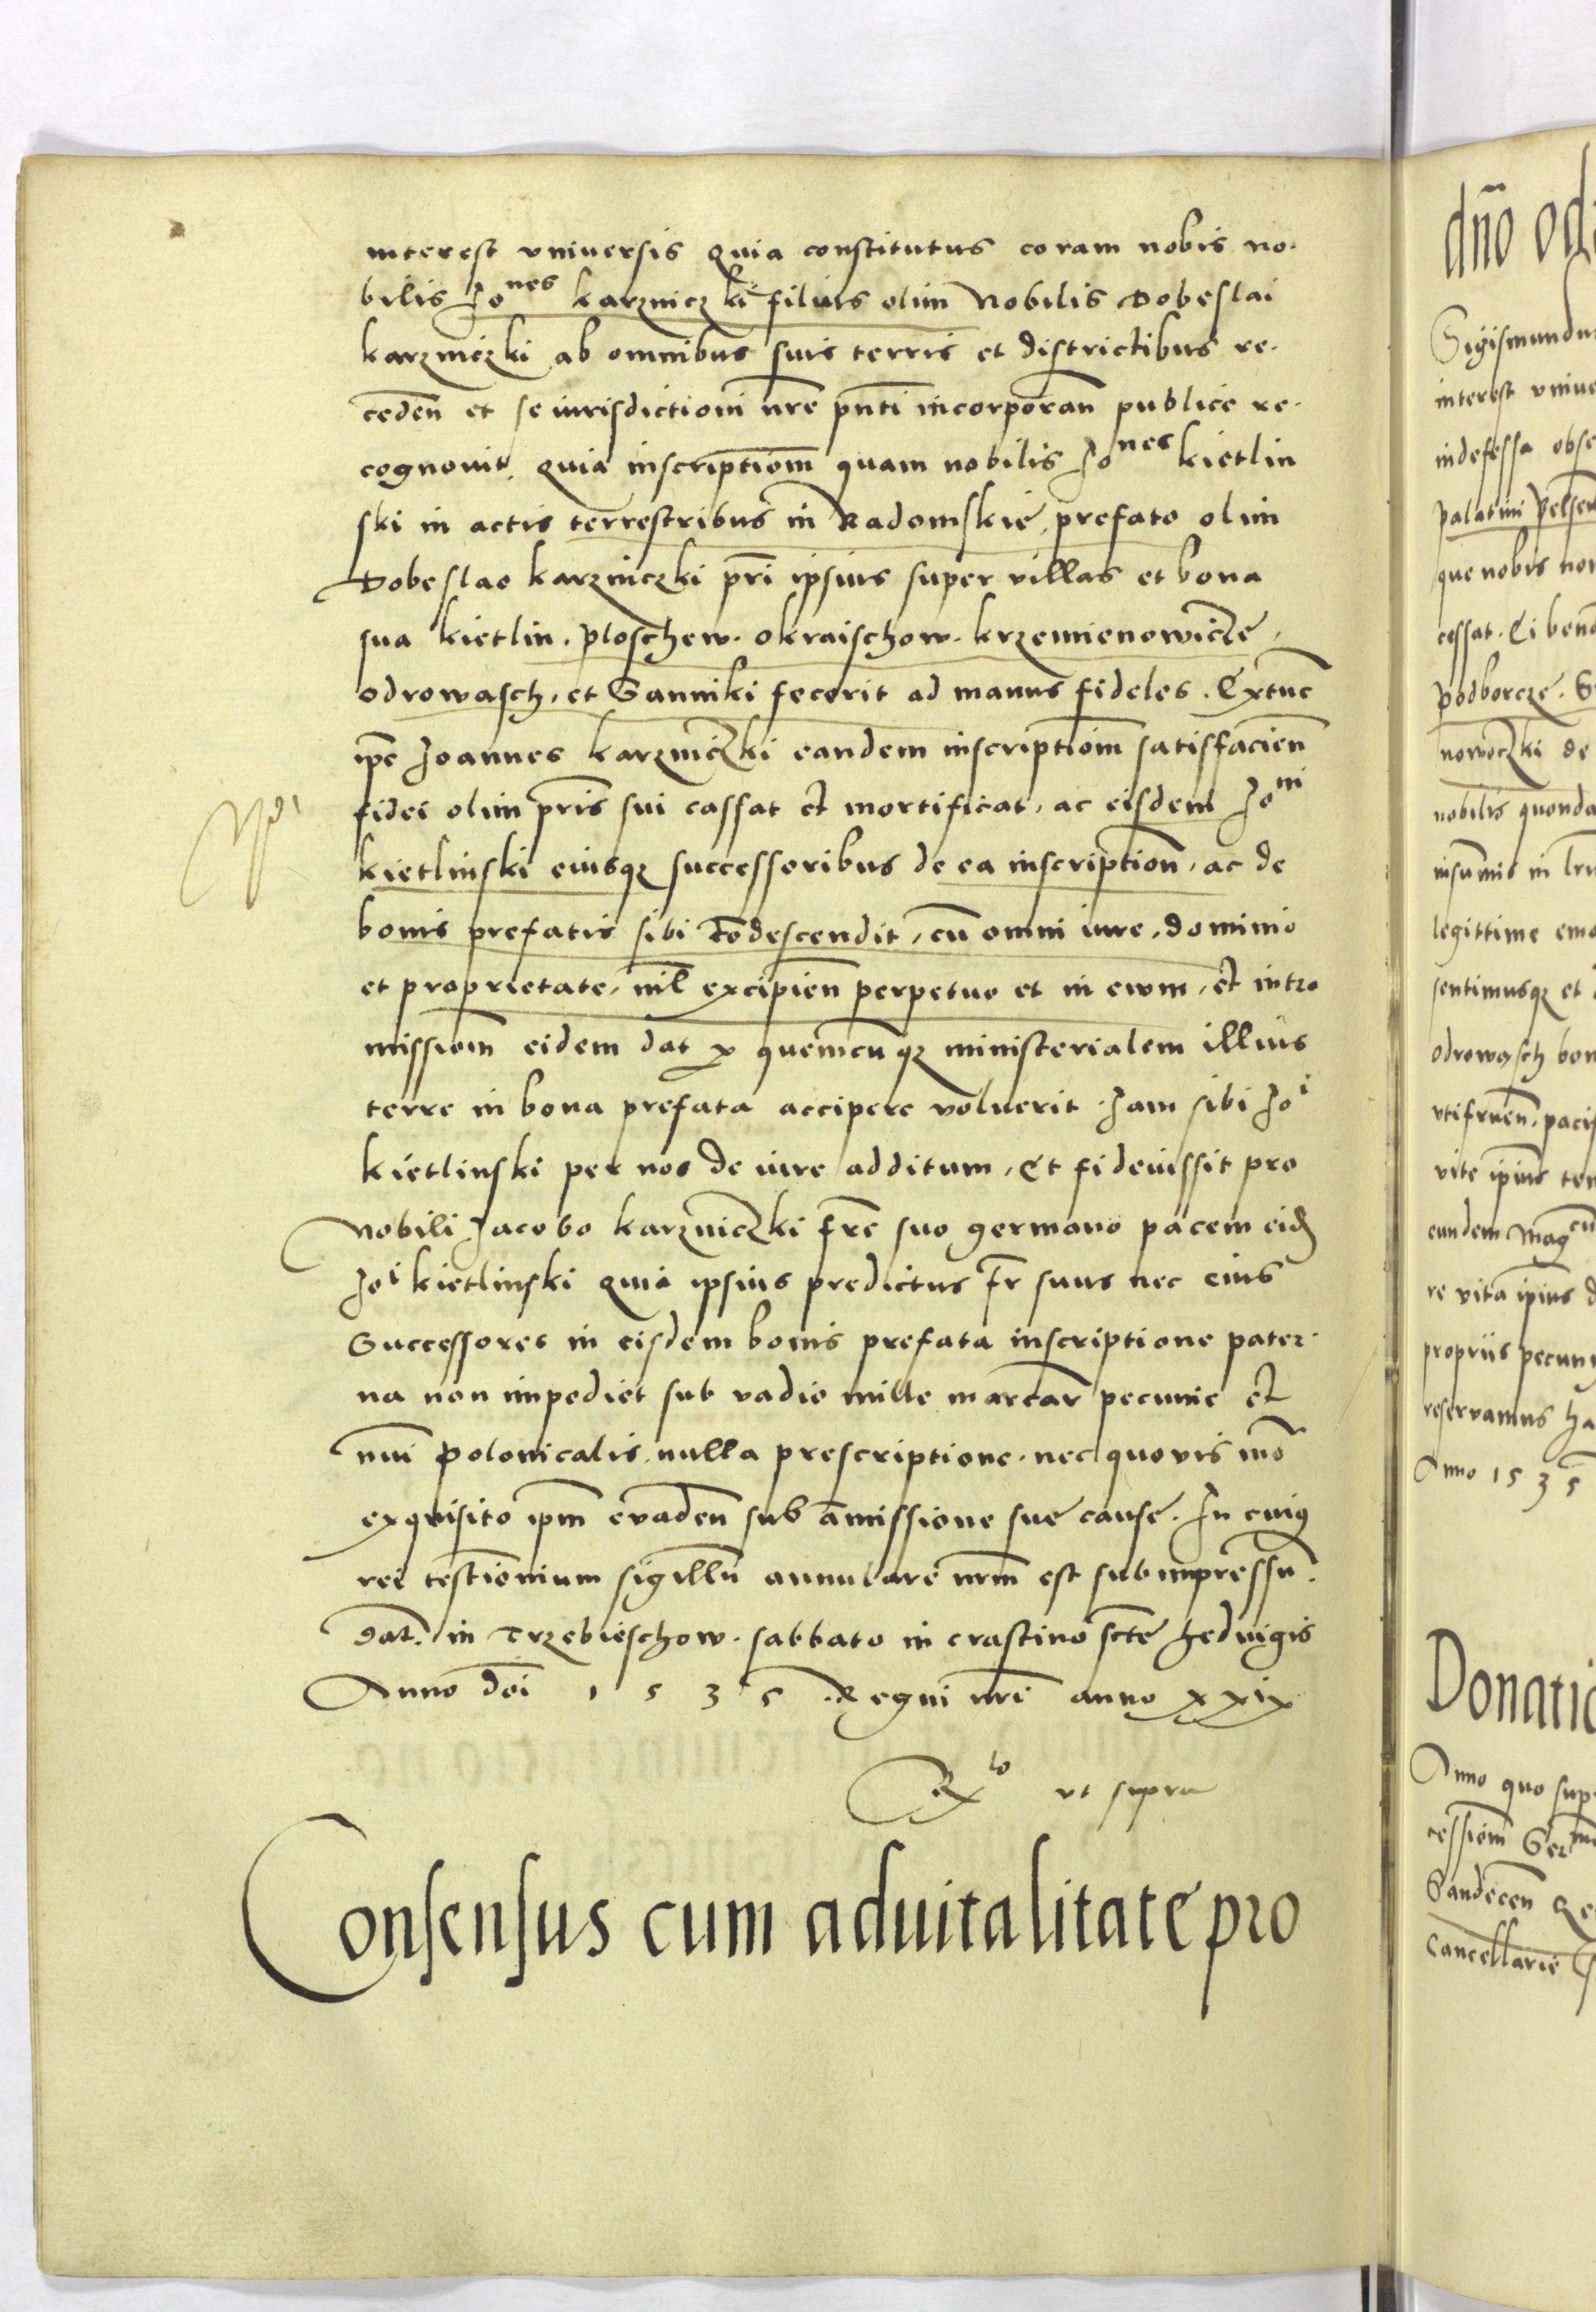 interest vniuersis Quia constitutus coram nobis no-
bilis Jo^nes karzniczki filius olim Nobilis Dobeslai
karzniczki ab omnibus suis terris et districtibus re-
ceden̄ et se iurisdictioni nr̄e pn̄ti incorporan̄ publice re-
cognouit. quia inscriptiōm quam nobilis Jo^nes kietlin
ski in actis terrestribus in Radomskie, prefato olim
Dobeslao karzniczki pr̄i ipsius super villas et bona
sua kietlin. ploschew. okraischow. krzemienowicze,
odrowasch, et Sanniki fecerit ad manus fideles. Extunc
ip̄e Joannes karzniczki eandem inscriptiōm satisfacien̄
fidei olim pr̄is sui cassat et mortificat, ac eisdem Jo^ni
kietlinski eiusq̨ successoribus de ea inscription̄, ac de
bonis prefatis sibi cōdescendit, cū omni iure, dominio
et proprietate, nil̄ excipien̄ perpetuo et in ewm, et intro
missiom̄ eidem dat p quemcūq̨ ministerialem illius
terre in bona prefata accipere voluerit. Jam sibi Jo^i
kietlinski per nos de iure additum, Et fideiussit pro
Nobili Jacobo karzniczki fr̄e suo germano pacem eid̄
Jo^i kietlinski quia ipsius predictus fr̄ suus nec eius
Successores in eisdem bonis prefata inscriptione pater-
na non impediet sub vadio mille marcar̄ pecunie et
nūi polonicalis, nulla prescriptione, nec quouis mō
exquisito ipm̄ euaden̄ sub amissione sue cause. In cuiq
rei testīonium sigillū annulare nr̄m est subimpressū.
Dat. in Trzebieschow. sabbato in crastino scte hedvigis
Anno dōi 1535 Regni nr̄i anno xxix
Rx^lo vt supra
Consensus cum aduitalitate pro
dn̄o
Sigismundu
interest vniue
indefessa obse
palatini
que nobis non
cessat.
podborcze.
nowoczki de
nobilis quonda
legittime em
sentimusq̨ et
odrowasch bon
vtifruen̄. paci
vite ipīus ten
eundem Mag^cu
re vita ipīus d
propriis pecun
reseruamus ha
Anno 1535
Donatio
Anno quo sup
cessiom̄
Sandecen̄
Cancellarie